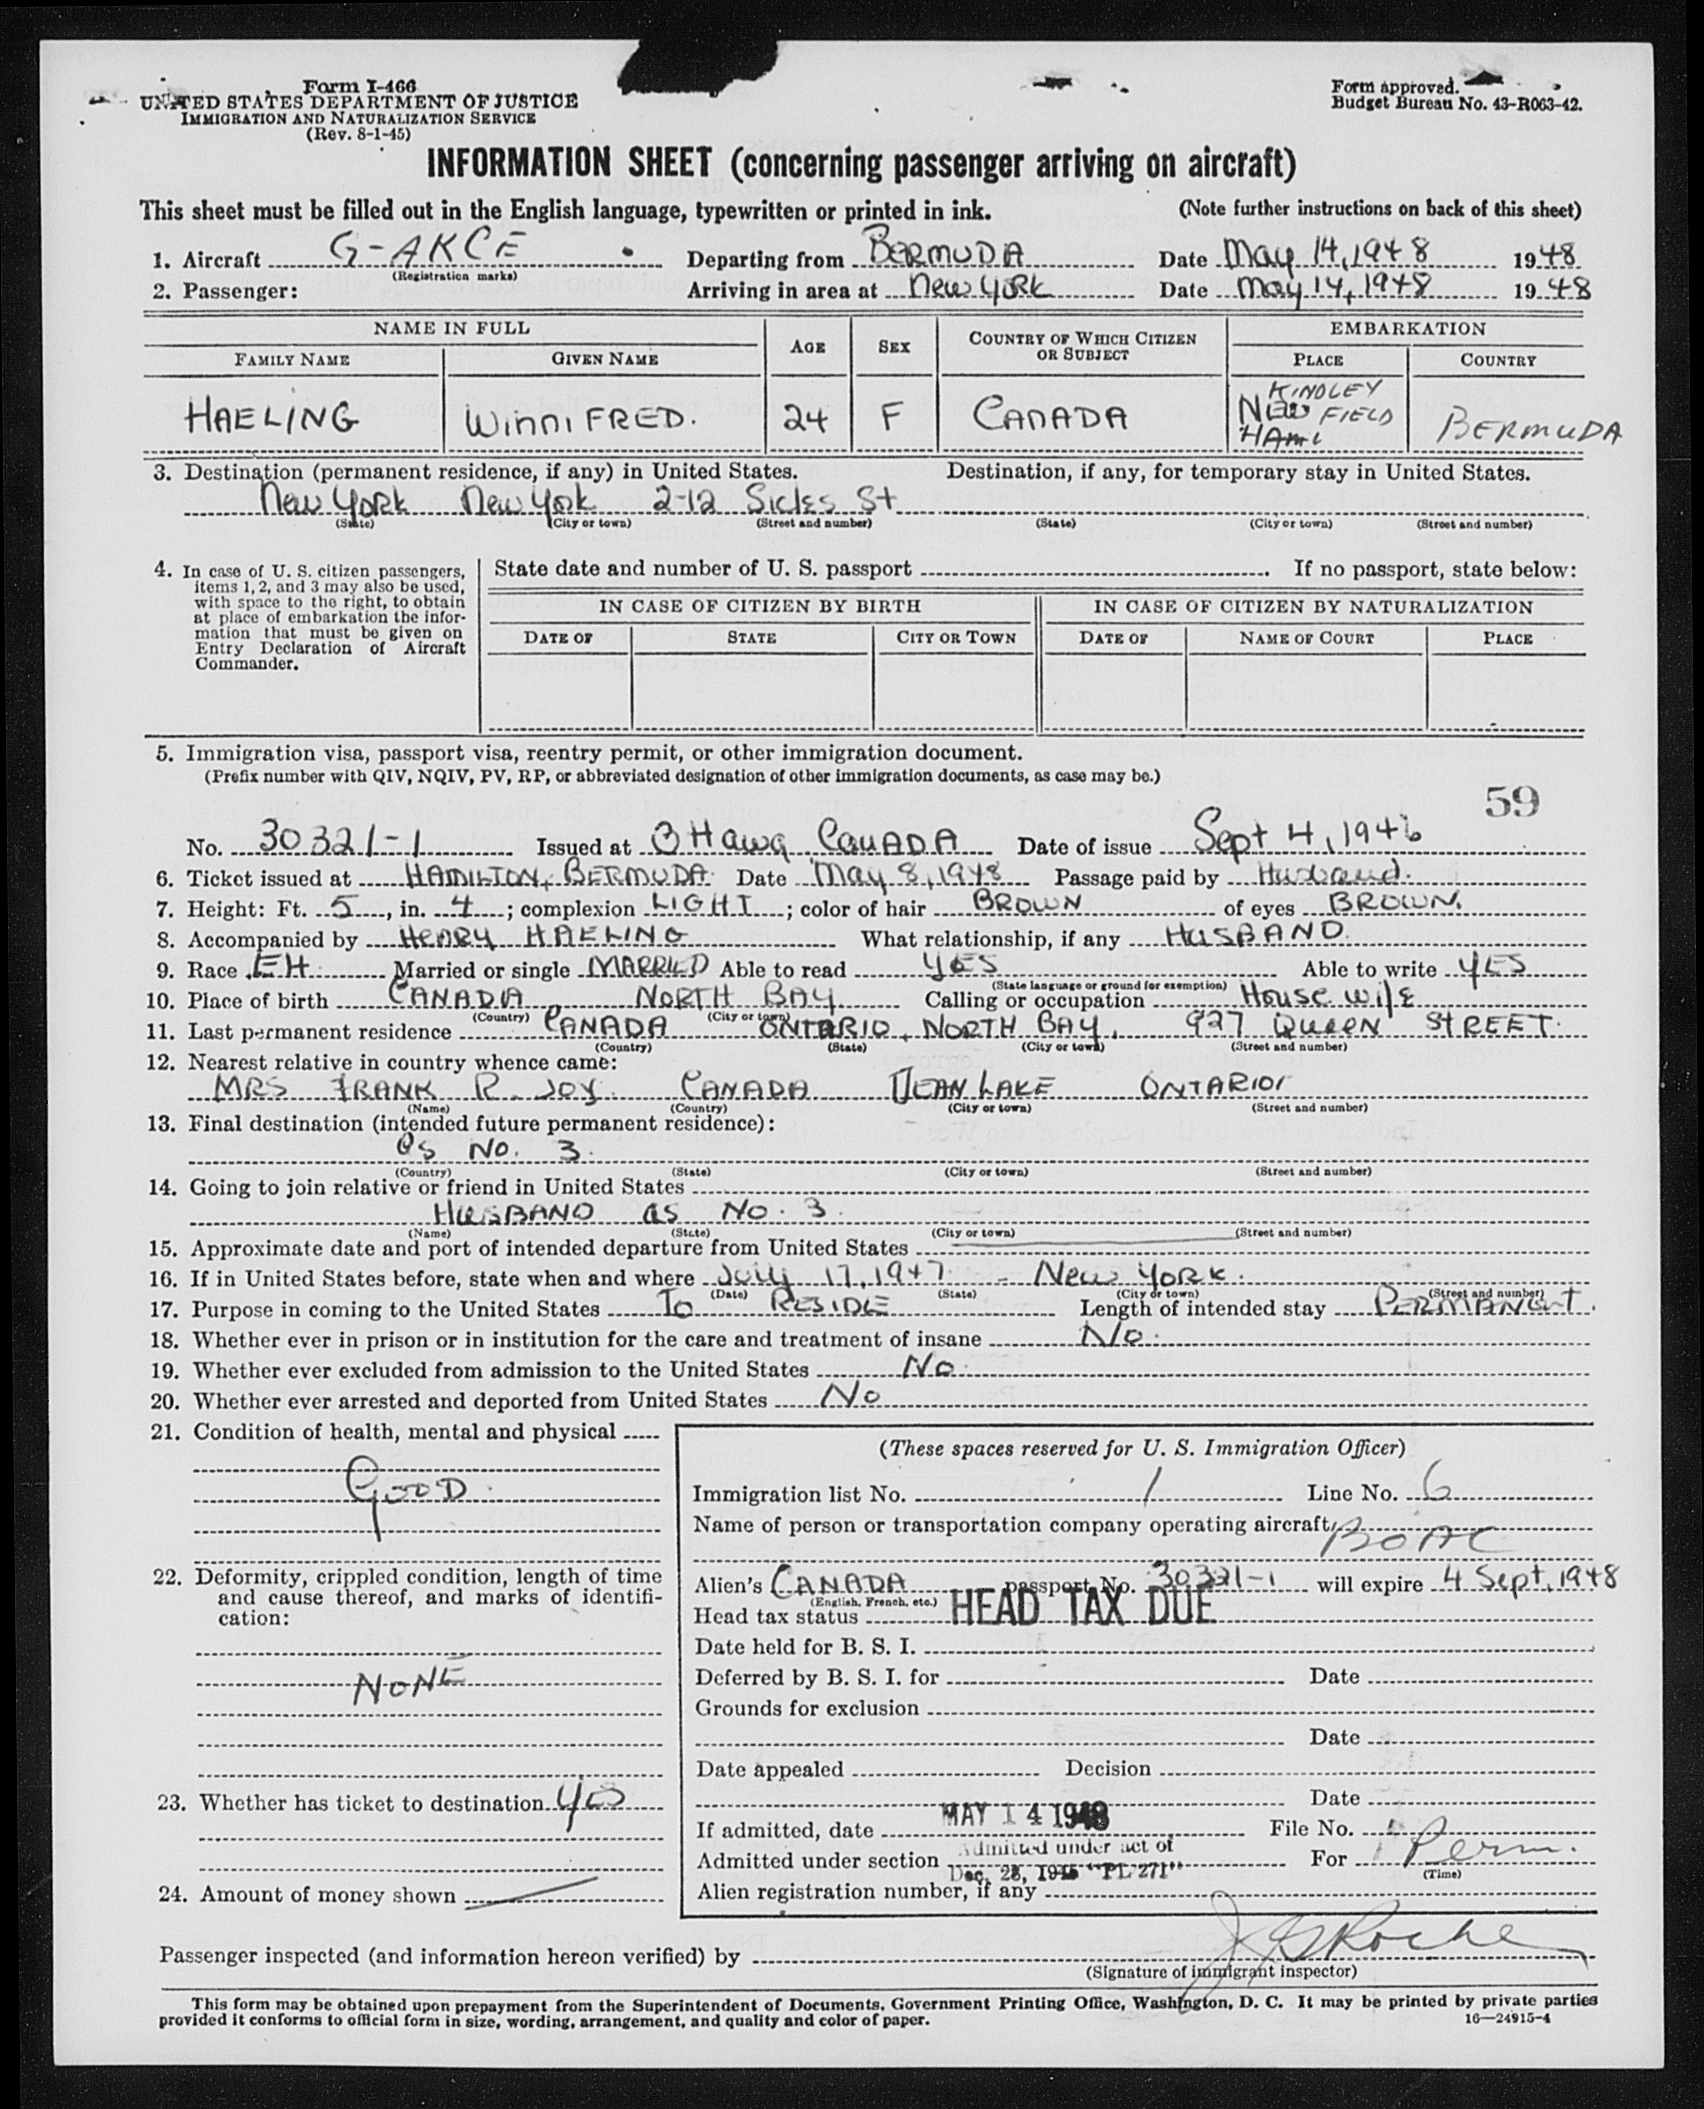 Form I-466
UNITED STATES DEPARTMENT OF JUSTICE
IMMIGRATION AND NATURALIZATION SERVICE
(Rev. 8-1-45)
Form approved.
Budget Bureau No. 43-R063-42.
INFORMATION SHEET (concerning passenger arriving on aircraft)
This sheet must be filled out in the English language, typewritten or printed in ink. (Note further instructions on back of this sheet)
1. Aircraft G-AKCE Departing from BERMUDA Date May 14, 1948 1948
(Registration marks)
2. Passenger: Arriving in area at New York Date May 14, 1948 1948
NAME IN FULL AGE SEX COUNTRY OF WHICH CITIZEN OR SUBJECT EMBARKATION
FAMILY NAME GIVEN NAME PLACE COUNTRY
HAELING WINNIFRED. 24 F CANADA KINDLEY FIELD BERMUDA
3. Destination (permanent residence, if any) in United States. Destination, if any, for temporary stay in United States.
New York New York 2-12 Sickes St
(State) (City or town) (Street and number) (State) (City or town) (Street and number)
4. In case of U. S. citizen passengers, items 1, 2, and 3 may also be used, with space to the right, to obtain at place of embarkation the information that must be given on Entry Declaration of Aircraft Commander.
State date and number of U. S. passport If no passport, state below:
IN CASE OF CITIZEN BY BIRTH IN CASE OF CITIZEN BY NATURALIZATION
DATE OF STATE CITY OR TOWN DATE OF NAME OF COURT PLACE
5. Immigration visa, passport visa, reentry permit, or other immigration document.
(Prefix number with QIV, NQIV, PV, RP, or abbreviated designation of other immigration documents, as case may be.)
59
No. 30321-1 Issued at Ottawa CANADA Date of issue Sept 4, 1946
6. Ticket issued at HAMILTON, BERMUDA. Date May 8, 1948 Passage paid by Husband.
7. Height: Ft. 5, in. 4; complexion LIGHT; color of hair BROWN of eyes BROWN.
8. Accompanied by HENRY HAELING What relationship, if any HUSBAND.
9. Race EH. Married or single MARRIED Able to read YES Able to write YES
(State language or ground for exemption)
10. Place of birth CANADA NORTH BAY. Calling or occupation House wife
(Country) (City or town)
11. Last permanent residence CANADA ONTARIO, NORTH BAY, 927 QUEEN STREET.
(Country) (State) (City or town) (Street and number)
12. Nearest relative in country whence came:
MRS FRANK R. JOY. CANADA DEAN LAKE ONTARIO
(Name) (Country) (City or town) (Street and number)
13. Final destination (intended future permanent residence):
as No. 3.
(Country) (State) (City or town) (Street and number)
14. Going to join relative or friend in United States
HUSBAND as No. 3.
(Name) (State) (City or town) (Street and number)
15. Approximate date and port of intended departure from United States
16. If in United States before, state when and where July 17, 1947 - New York.
(Date) (State) (City or town) (Street and number)
17. Purpose in coming to the United States To RESIDE Length of intended stay PERMANENT.
18. Whether ever in prison or in institution for the care and treatment of insane No.
19. Whether ever excluded from admission to the United States No.
20. Whether ever arrested and deported from United States No
21. Condition of health, mental and physical
GOOD.
22. Deformity, crippled condition, length of time and cause thereof, and marks of identification:
NONE
23. Whether has ticket to destination YES
24. Amount of money shown
(These spaces reserved for U. S. Immigration Officer)
Immigration list No. 1 Line No. 6
Name of person or transportation company operating aircraft, BOAC
Alien's CANADA passport No. 30321-1 will expire 4 Sept, 1948
(English, French, etc.)
Head tax status HEAD TAX DUE
Date held for B. S. I.
Deferred by B. S. I. for Date
Grounds for exclusion
Date
Date appealed Decision
Date
If admitted, date MAY 14 1948 File No.
Admitted under section Admitted under act of Dec. 28, 1945 "PL 271" For Perm.
(Time)
Alien registration number, if any
Passenger inspected (and information hereon verified) by J G Roche
(Signature of immigrant inspector)
This form may be obtained upon prepayment from the Superintendent of Documents, Government Printing Office, Washington, D. C. It may be printed by private parties
provided it conforms to official form in size, wording, arrangement, and quality and color of paper. 16—24915-4